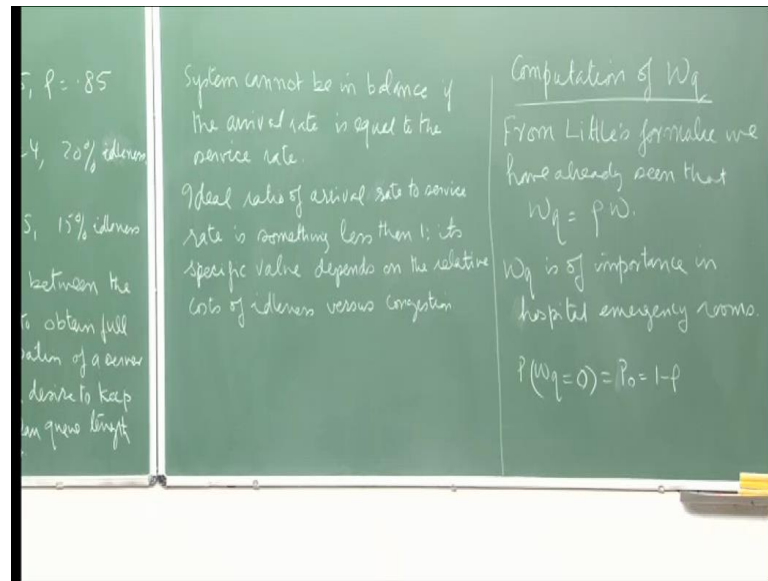 5, ρ = .85
4, 20% idleness
5, 15% idleness
between the
to obtain full
ation of a server
desire to keep
queue length
System cannot be in balance if
the arrival rate is equal to the
service rate.
Ideal ratio of arrival rate to service
rate is something less than 1: its
specific value depends on the relative
costs of idleness versus congestion
Computation of Wq
From Little's formulae we
have already seen that
Wq = ρW.
Wq is of importance in
hospital emergency rooms.
P(Wq=0) = P₀ = 1-ρ